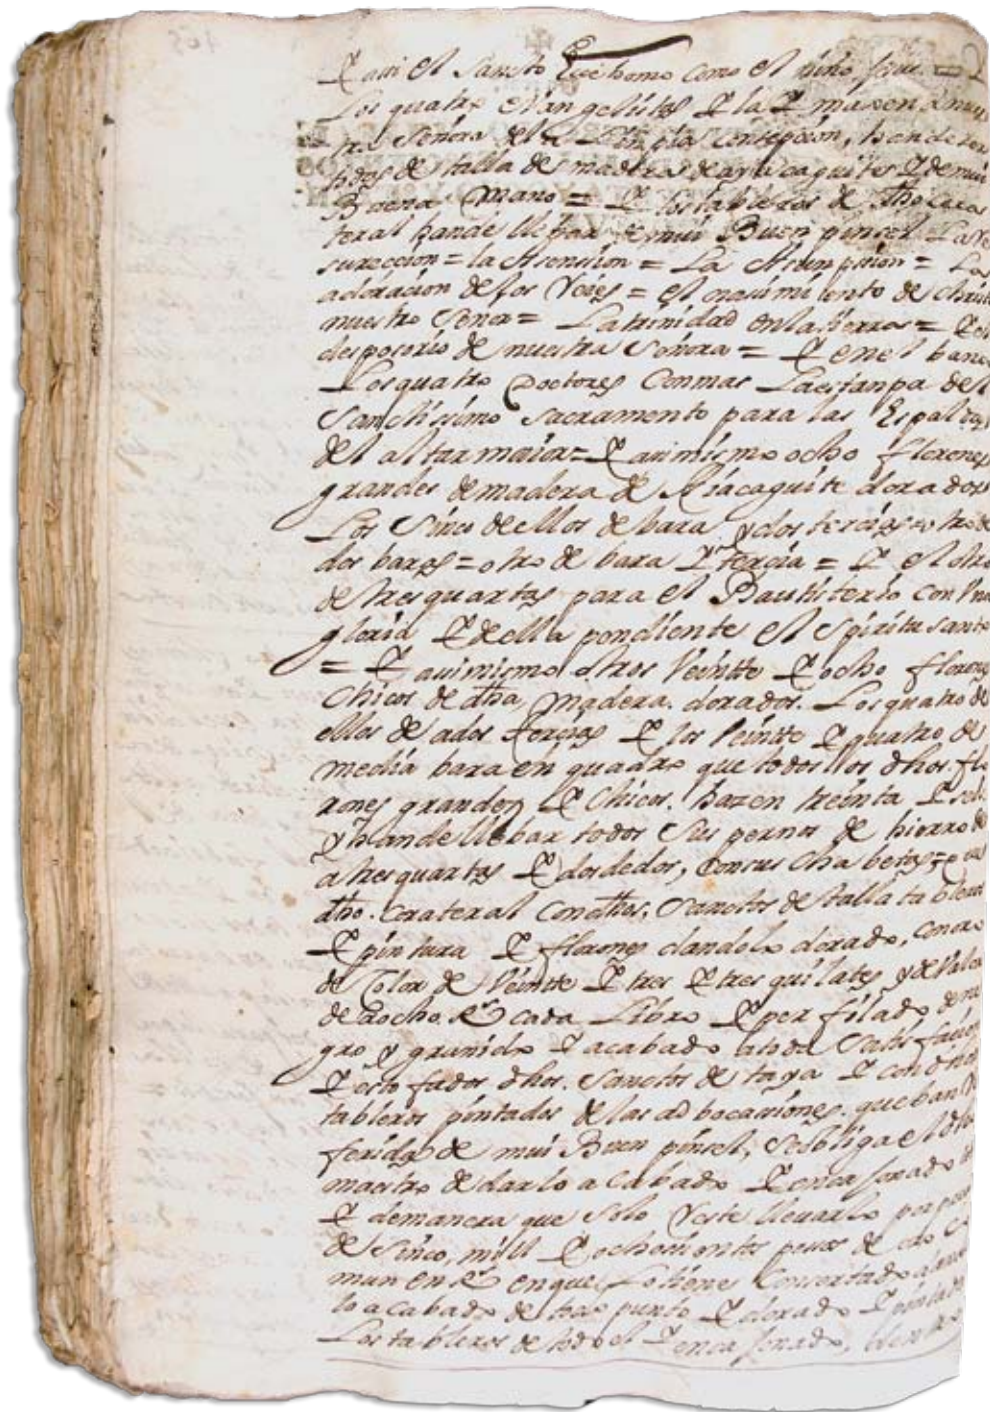 Y assi el Sancto Ecce homo como el niño Jesus =
Los quatro evangelistas Y la Ymaxen de nues
tra señora de la Limpia Consepcion, han de ser
todos de talla de madera de ayacaguites Y de mui
Buena mano = Y los tableros de dho Cola
teral hande llebar de mui Buen pinsel La Re
sureccion = la Asension = La Asumpsion = La
adoracion de los Reies = el nasimiento de christo
nuestro Señor = La trinidad en la tierra = Y el
desposorio de nuestra Señora = Y en el banco
Los quatro Doctores Con mas La estanpa del
Sanctissimo Sacramento para las Espaldas
del altar maior = Y asimismo ocho florones
grandes de madera de Aiacaguite dorados
Los Sinco de ellos de bara y dos tercias otro de
dos baras = otro de bara Y tercia = Y el otro
de tres quartas para el Bauptisterio con Una
gloria Y de ella pendiente el Spiritu santo
= Y asimismo otros Veintte Y ocho florones
chicos de dha madera. dorados. Los quatro de
ellos de a dos tercias Y los Veintte Y quatro de
media bara en quadro que todos los dhos. flo
rones grandes Y Chicos. hazen treinta Y seis
y han de llebar todos sus pernos de hierro de
a tres quartas Y dos dedos, Con sus Chabetas =
dho. Colateral Con dhos, Sanctos de talla tableros
Y pintura Y florones dandolo dorado, con oro
de Color de Veintte Y tres Y tres quilates y de Valor
de cada Libro Y perfilado de ne
gro y gruñido Y acabado a toda Satisfacion
Y estofados dhos. Sanctos de taya Y con dhos
tableros pintados de las adbocasiones. que ban Re
feridas de mui Buen pinsel, Se obliga el dho
maestro de darlo acabado Y ensasonado
Y de manera que solo Reste llevarlo por presio
de Sinco, mill Y ochosientos pesos de oro Co
mun en Rs en que Lo tiene Consertado
lo acabado de todo punto Y dorado Y pintado
Los tableros de todo el Y ensasonado, dentro